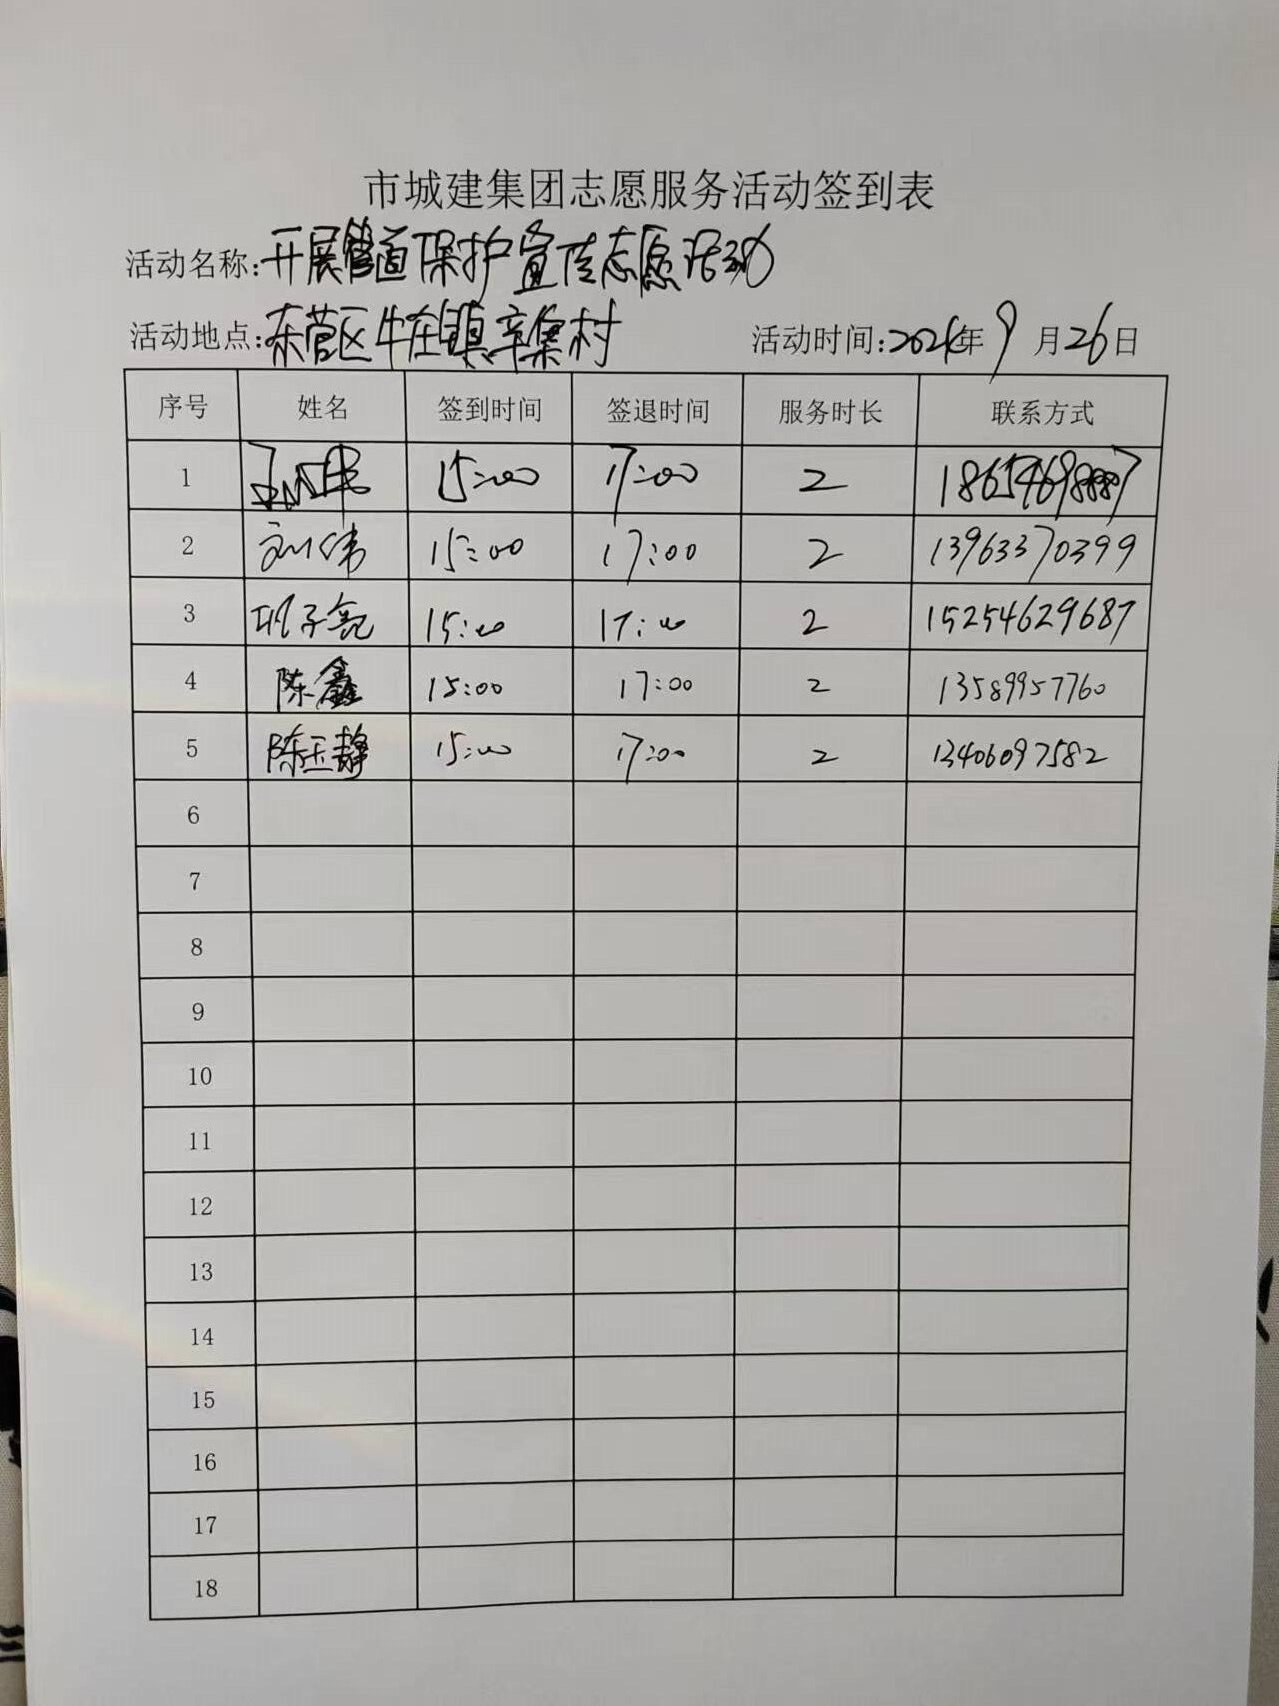 市城建集团志愿服务活动签到表
活动名称:开展管道保护宣传志愿活动
活动地点:东营区牛庄镇辛集村 活动时间:2024年9月26日
序号 姓名 签到时间 签退时间 服务时长 联系方式
1 15:00 17:00 2
2 刘伟 15:00 17:00 2 13963370399
3 15:00 17:00 2 15254629687
4 陈鑫 15:00 17:00 2 13589957760
5 陈玉静 15:00 17:00 2 13406097582
6
7
8
9
10
11
12
13
14
15
16
17
18